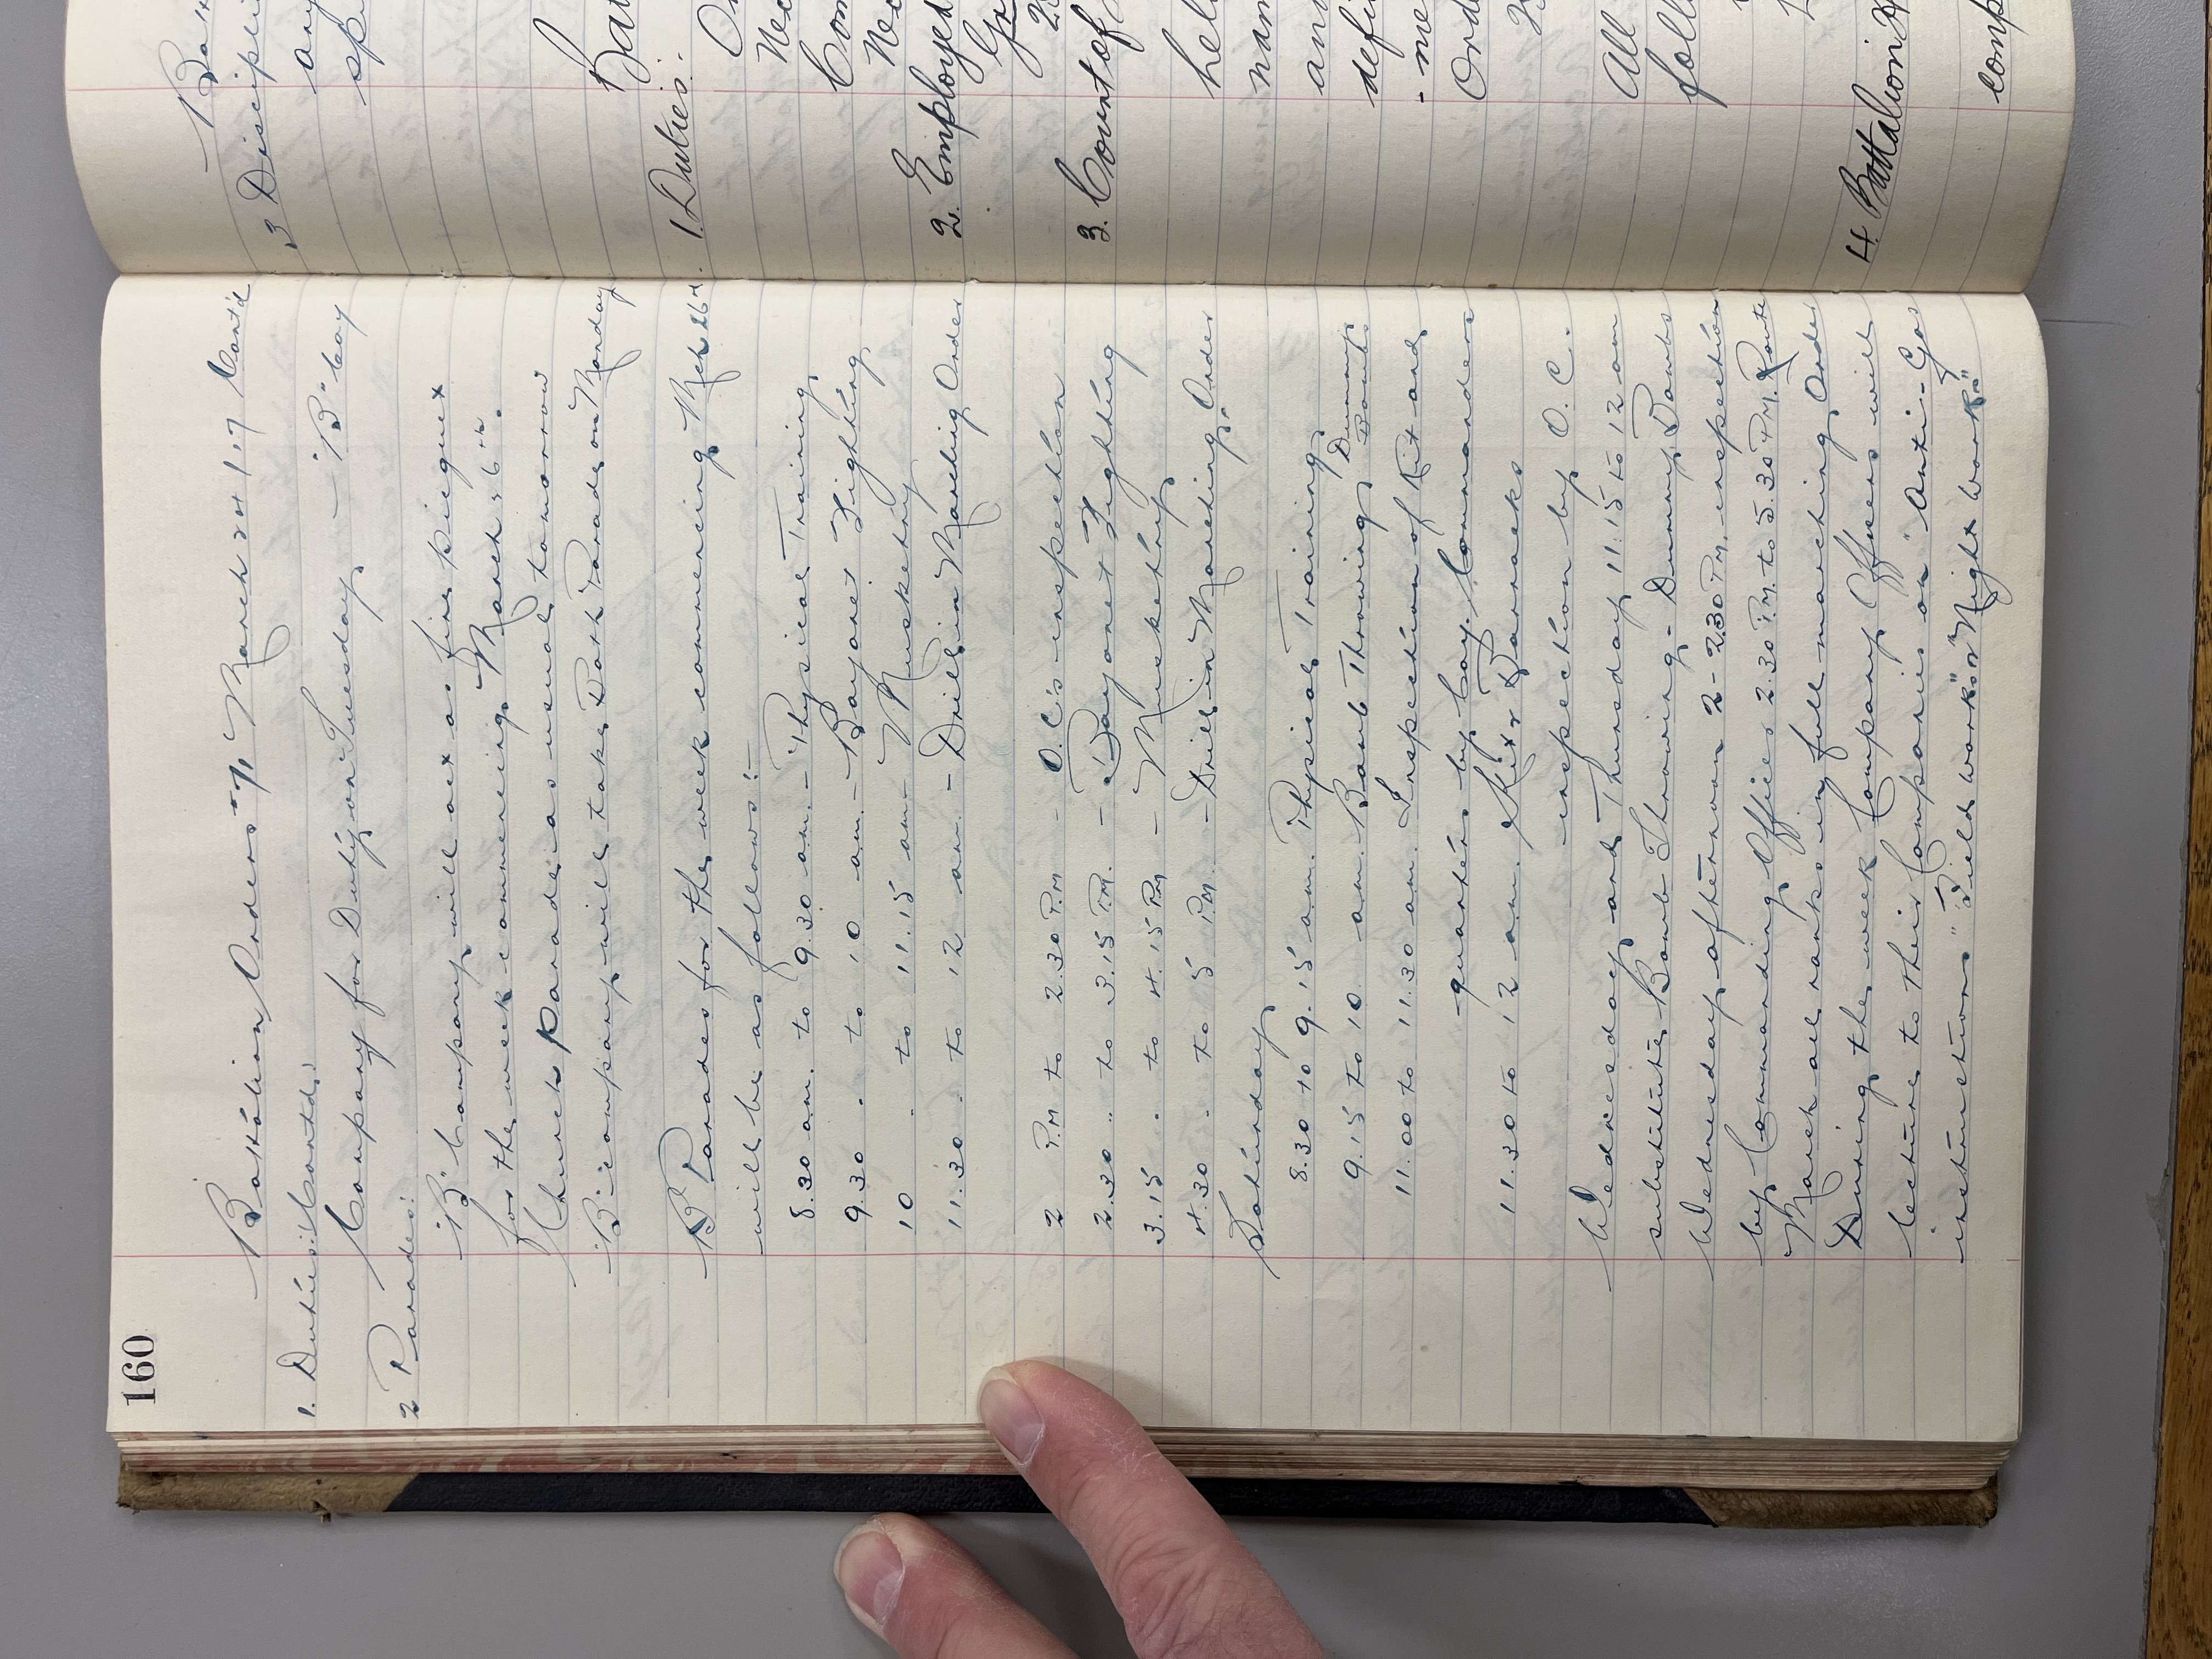 160
Battalion Orders - March 24/17 Cont'd
1. Duties: Contd.
Company for Duty on Tuesday — "B" Coy
2 Parades:
"B" Company will act as fire picquet
for the week commencing March 26th.
Church parade as usual tomorrow
"B" Company will take Bath Parade on Monday
Parades for the week commencing Mch 26th.
will be as follows:-
8.30 am. to 9.30 am. - Physical Training
9.30 . to 10 am. - Bayonet Fighting
10 . to 11.15 am - Musketry
11.30 . to 12 am. - Drill in Marching Order
2 P.M to 2.30 P.M - O.C's inspection
2.30 .. to 3.15 P.M. - Bayonet Fighting
3.15 . to 4.15 PM - Musketry
4.30 . to 5 P.M. - Drill in Marching Order
Saturday
8.30 to 9.15 am. Physical Training
9.15 to 10 am. Bomb Throwing Dummy Bombs
11.00 to 11.30 am. Inspection of Kit and
quarters by Coy. Commanders
11.30 to 12 am. Kit & Barracks
inspection by O.C.
Wednesday and Thursday 11.15 to 12 am
substitute Bomb Throwing - Dummy Bombs
Wednesday afternoon 2 - 2.30 P.M. inspection
by Commanding Officer 2.30 P.M. to 5.30 P.M. Route
March all ranks in full marching Order
During the week Company Officers will
lecture to their Companies on "Anti-Gas
instructions" "Field work" or "Night work."
3 Discipli
any
spe
Bat
1. Duties:
Com
2. Employed
3. Court of
hel
nam
and
defi
- me
Orde
All
foll
4 Battalion
comp